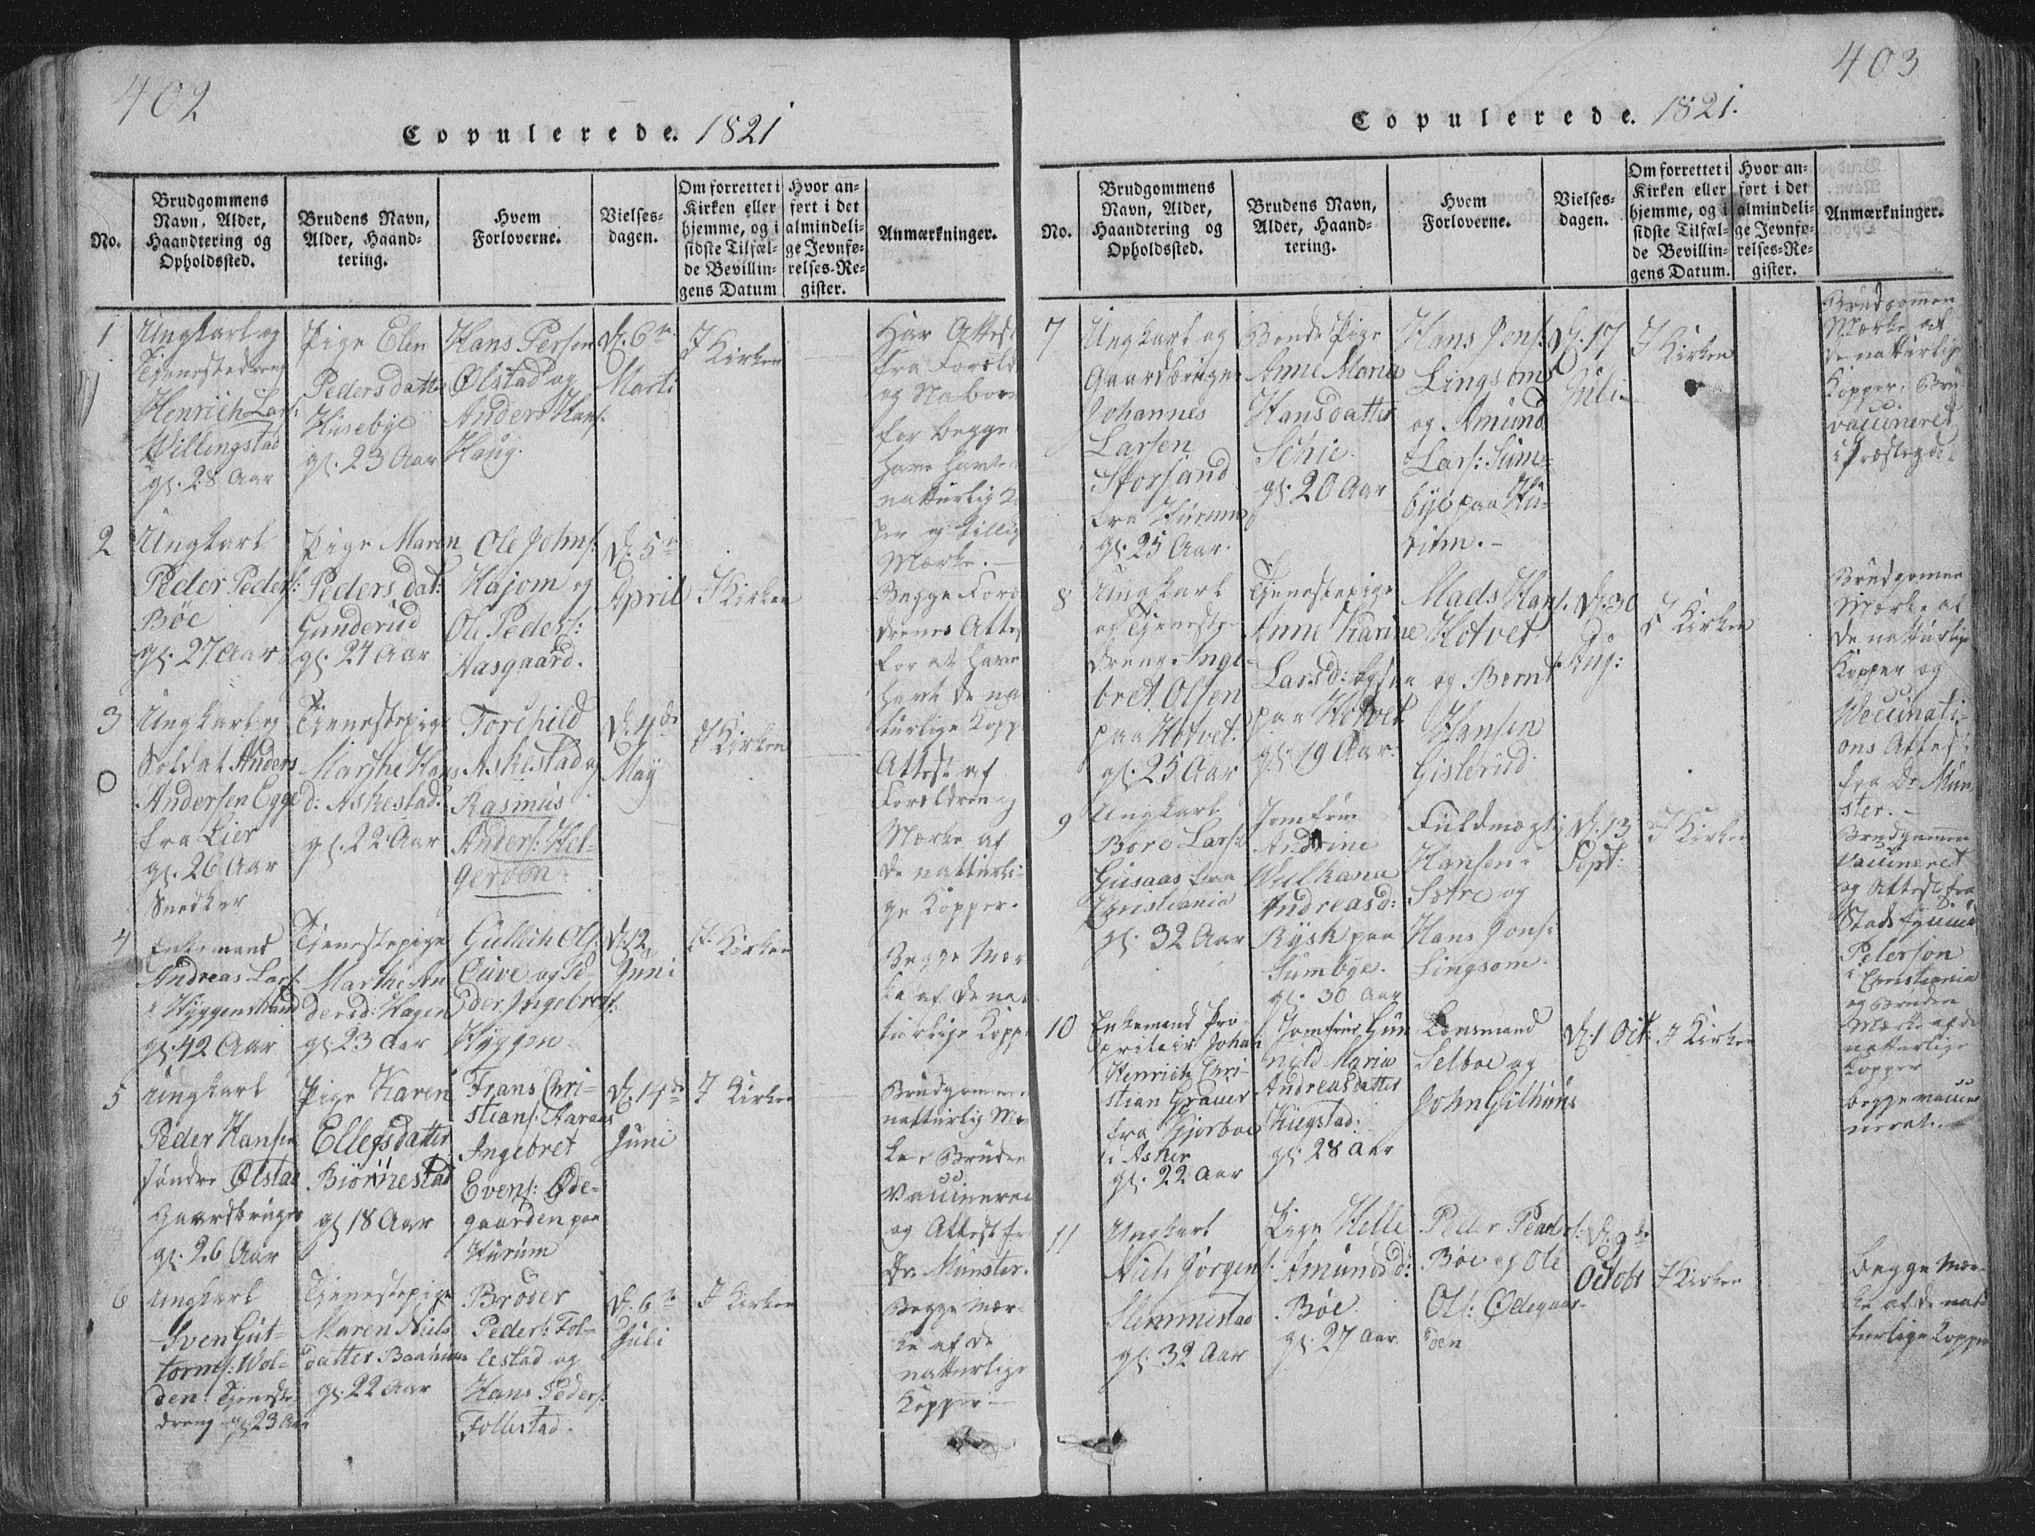 402
Copulerede. 1821
No.
Brudgommens
Navn, Alder,
Haandtering og
Opholdssted.
Brudens Navn,
Alder, Haand-
tering.
Hvem
Forloverne.
Vielses-
dagen.
Om forrettet i
Kirken eller
hjemme, og i
sidste Tilfæl-
de Bevillin-
gens Datum
Hvor an-
ført i det
almindeli-
ge Jevnfø-
relses-Re-
gister.
Anmærkninger.
1
Ungkarl og
Tjenestedreng
Henrich Lars:
Willingstad
gl. 28 Aar
Pige Elen
Pedersdatter
Husebye
gl. 23 Aar
Hans Persen
Ølstad og
Anders Hans:
Haug.
D. 6te
Marti
I Kirken
Har Attest
fra Foræld
og Nabo
for begge
have havt
naturlig
Mærke.
2
Ungkarl
Peder Peders:
Böe
gl. 27 Aar
Pige Maren
Peders dat:
Gunderud
gl. 24 Aar
Ole Johns:
Hajom og
Ole Peders:
Aasgaard.
D. 5te
April
I Kirken
Begge Foræl
drenes Attest
for at have
havt de na
turlige Kopp
3
Ungkarl og
Soldat Anders
Andersen Egge
fra Lier
gl. 26 Aar
Snedker
Tjenestepige
Marthe Hans
d: Askestad.
gl. 22 Aar
Torchild
Askestad og
Rasmus
Anders: Hel-
geröen
D. 4de
May
I Kirken
Attest af
Forældrene
Mærke af
de naturli-
ge Kopper.
4
Enkemand
Andreas Lars:
i Hyggenstrand
gl. 42 Aar
Tjenestepige
Marthe An
dersd: Hagen
gl. 23 Aar
Gullich Ols:
Cuve og Pe-
der Ingebrets:
Hyggen
D. 12
Juni
I Kirken
Begge Mær
ke af de nat
turlige Kopp
5
Ungkarl
Peder Hansen
søndre Ølstad
Gaardbruger
gl. 26 Aar
Pige Karen
Ellefsdatter
Biörnestad
gl 18 Aar
Frans Chri-
stians: Aaraas
Ingebret
Evens: Øde-
gaarden paa
Hurum
D. 14de
Juni
I Kirken
Brudgommen
naturlig Mær
ke Bruden
Vaccineret
og Attest fra
Dr. Münster.
6
Ungkarl
Sven Gut-
torms: Wol-
den Tjeneste
dreng gl 23 Aar
Tjenestepige
Maren Niels
datter
gl. 22 Aar
Bröder
Peders: Fol-
lestad og
Hans Peders:
Follestad.
D. 6te
Juli
I Kirken
Begge Mær-
ke af de
naturlige
Kopper
403
Copulerede. 1821.
No.
Brudgommens
Navn, Alder,
Haandtering og
Opholdssted.
Brudens Navn,
Alder, Haand-
tering.
Hvem
Forloverne.
Vielses-
dagen.
Om forrettet i
Kirken eller
hjemme, og i
sidste Tilfæl-
de Bevillin-
gens Datum.
Hvor an-
ført i det
almindeli-
ge Jevnfø-
relses-Re-
gister.
Anmærkninger.
7
Ungkarl og
Gaardbruger
Johannes
Larsen
Storsand
fra Hurum
gl. 25 Aar.
Bonde Pige
Anne Maria
Hansdatter
Schie.
gl. 20 Aar
Hans Jons:
Lingsom
og Amund
Lars: Sum-
bye paa Hu-
rum.
D. 17
Juli
I Kirken
Brudgommen
Mærke af
de naturlige
Kopper, Bru
vaccineret
i Præstegde.
8
Ungkarl
og Tjeneste-
dreng Inge-
bret Olsen
paa Hotvet.
gl. 25 Aar
Tjenestepige
Anne Karine
Larsd:
paa Hotvet
gl. 19 Aar.
Mads Hans:
Hotvet
og Bernt
Hansen
Gislerud.
D. 30
Aug:
I Kirken
Brudgommen
Mærke af
de naturlige
Kopper og
Vaccinati-
ons Attest
fra Dr Mün
ster.
9
Ungkarl
Bore Lars:
Gusaas fra
Christiania
gl. 32 Aar
Jomfrue
Andrine
Andreasd:
Rysk paa
Sumbye.
gl. 30 Aar
Fuldmægtig
Hansen
Sætre og
Hans Jons:
Lingsom.
D. 13
Sept:
I Kirken
Brudgommen
vaccineret
og Attest fra
Stads
Peterson
i Christiania
og Bruden
Mærke af de
naturlige
Kopper
10
Enkemand Pro-
pritair Johan
Henrich Chri-
stian Grauer
fra Gjorboe
i Asker
gl. 22 Aar
Jomfrue Gun
nild Maria
Andreasdatter
Kiegstad:
gl. 28 Aar
Lensmand
Selboe og
John Gilhuus
D. 1 Oct.
I Kirken
begge vacci
neret.
11
Ungkarl
Niels Jørgens:
Slemmestad
gl. 32 Aar
Pige Helle
Amundsd:
Böe
gl. 27 Aar
Peder Peders:
Böe og Ole
Ols: Ødegaar-
den
D. 9de
Octobr
I Kirken
begge Mær-
ke af de nat
turlige Kopper